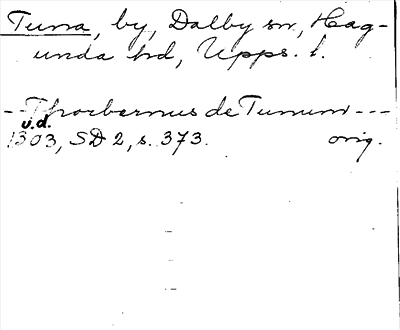 Tuna, by, Dalby sn, Hag-
unda hd, Upps. l.
--Thorbernus de Tunum---
u.d.
1303, SD 2, s. 373. orig.